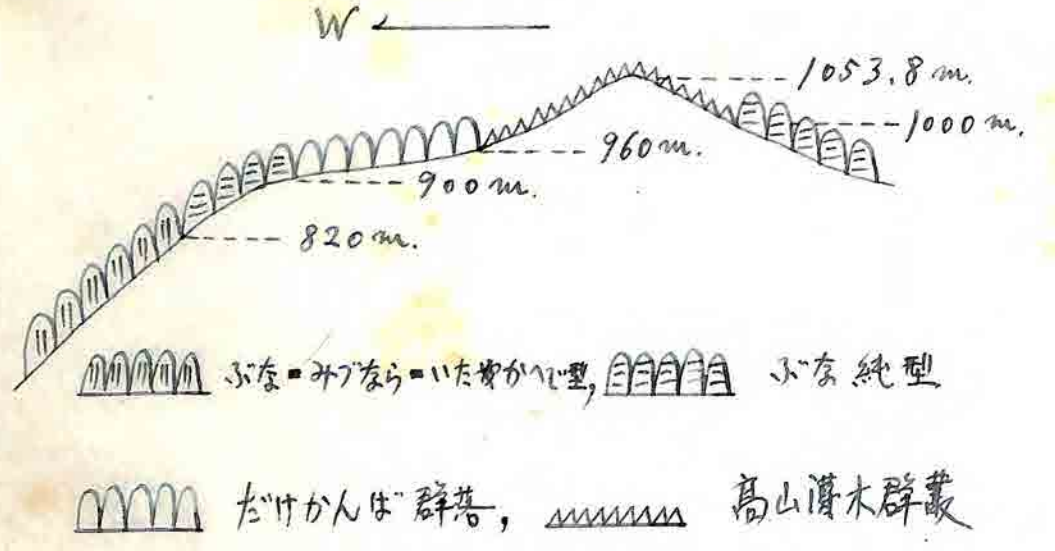 W
1053.8 m.
1000 m.
960 m.
900 m.
820 m.
ぶな=みづなら=いた やかへで型, ぶな 純型
だけかんば 群落, 高山灌木群叢